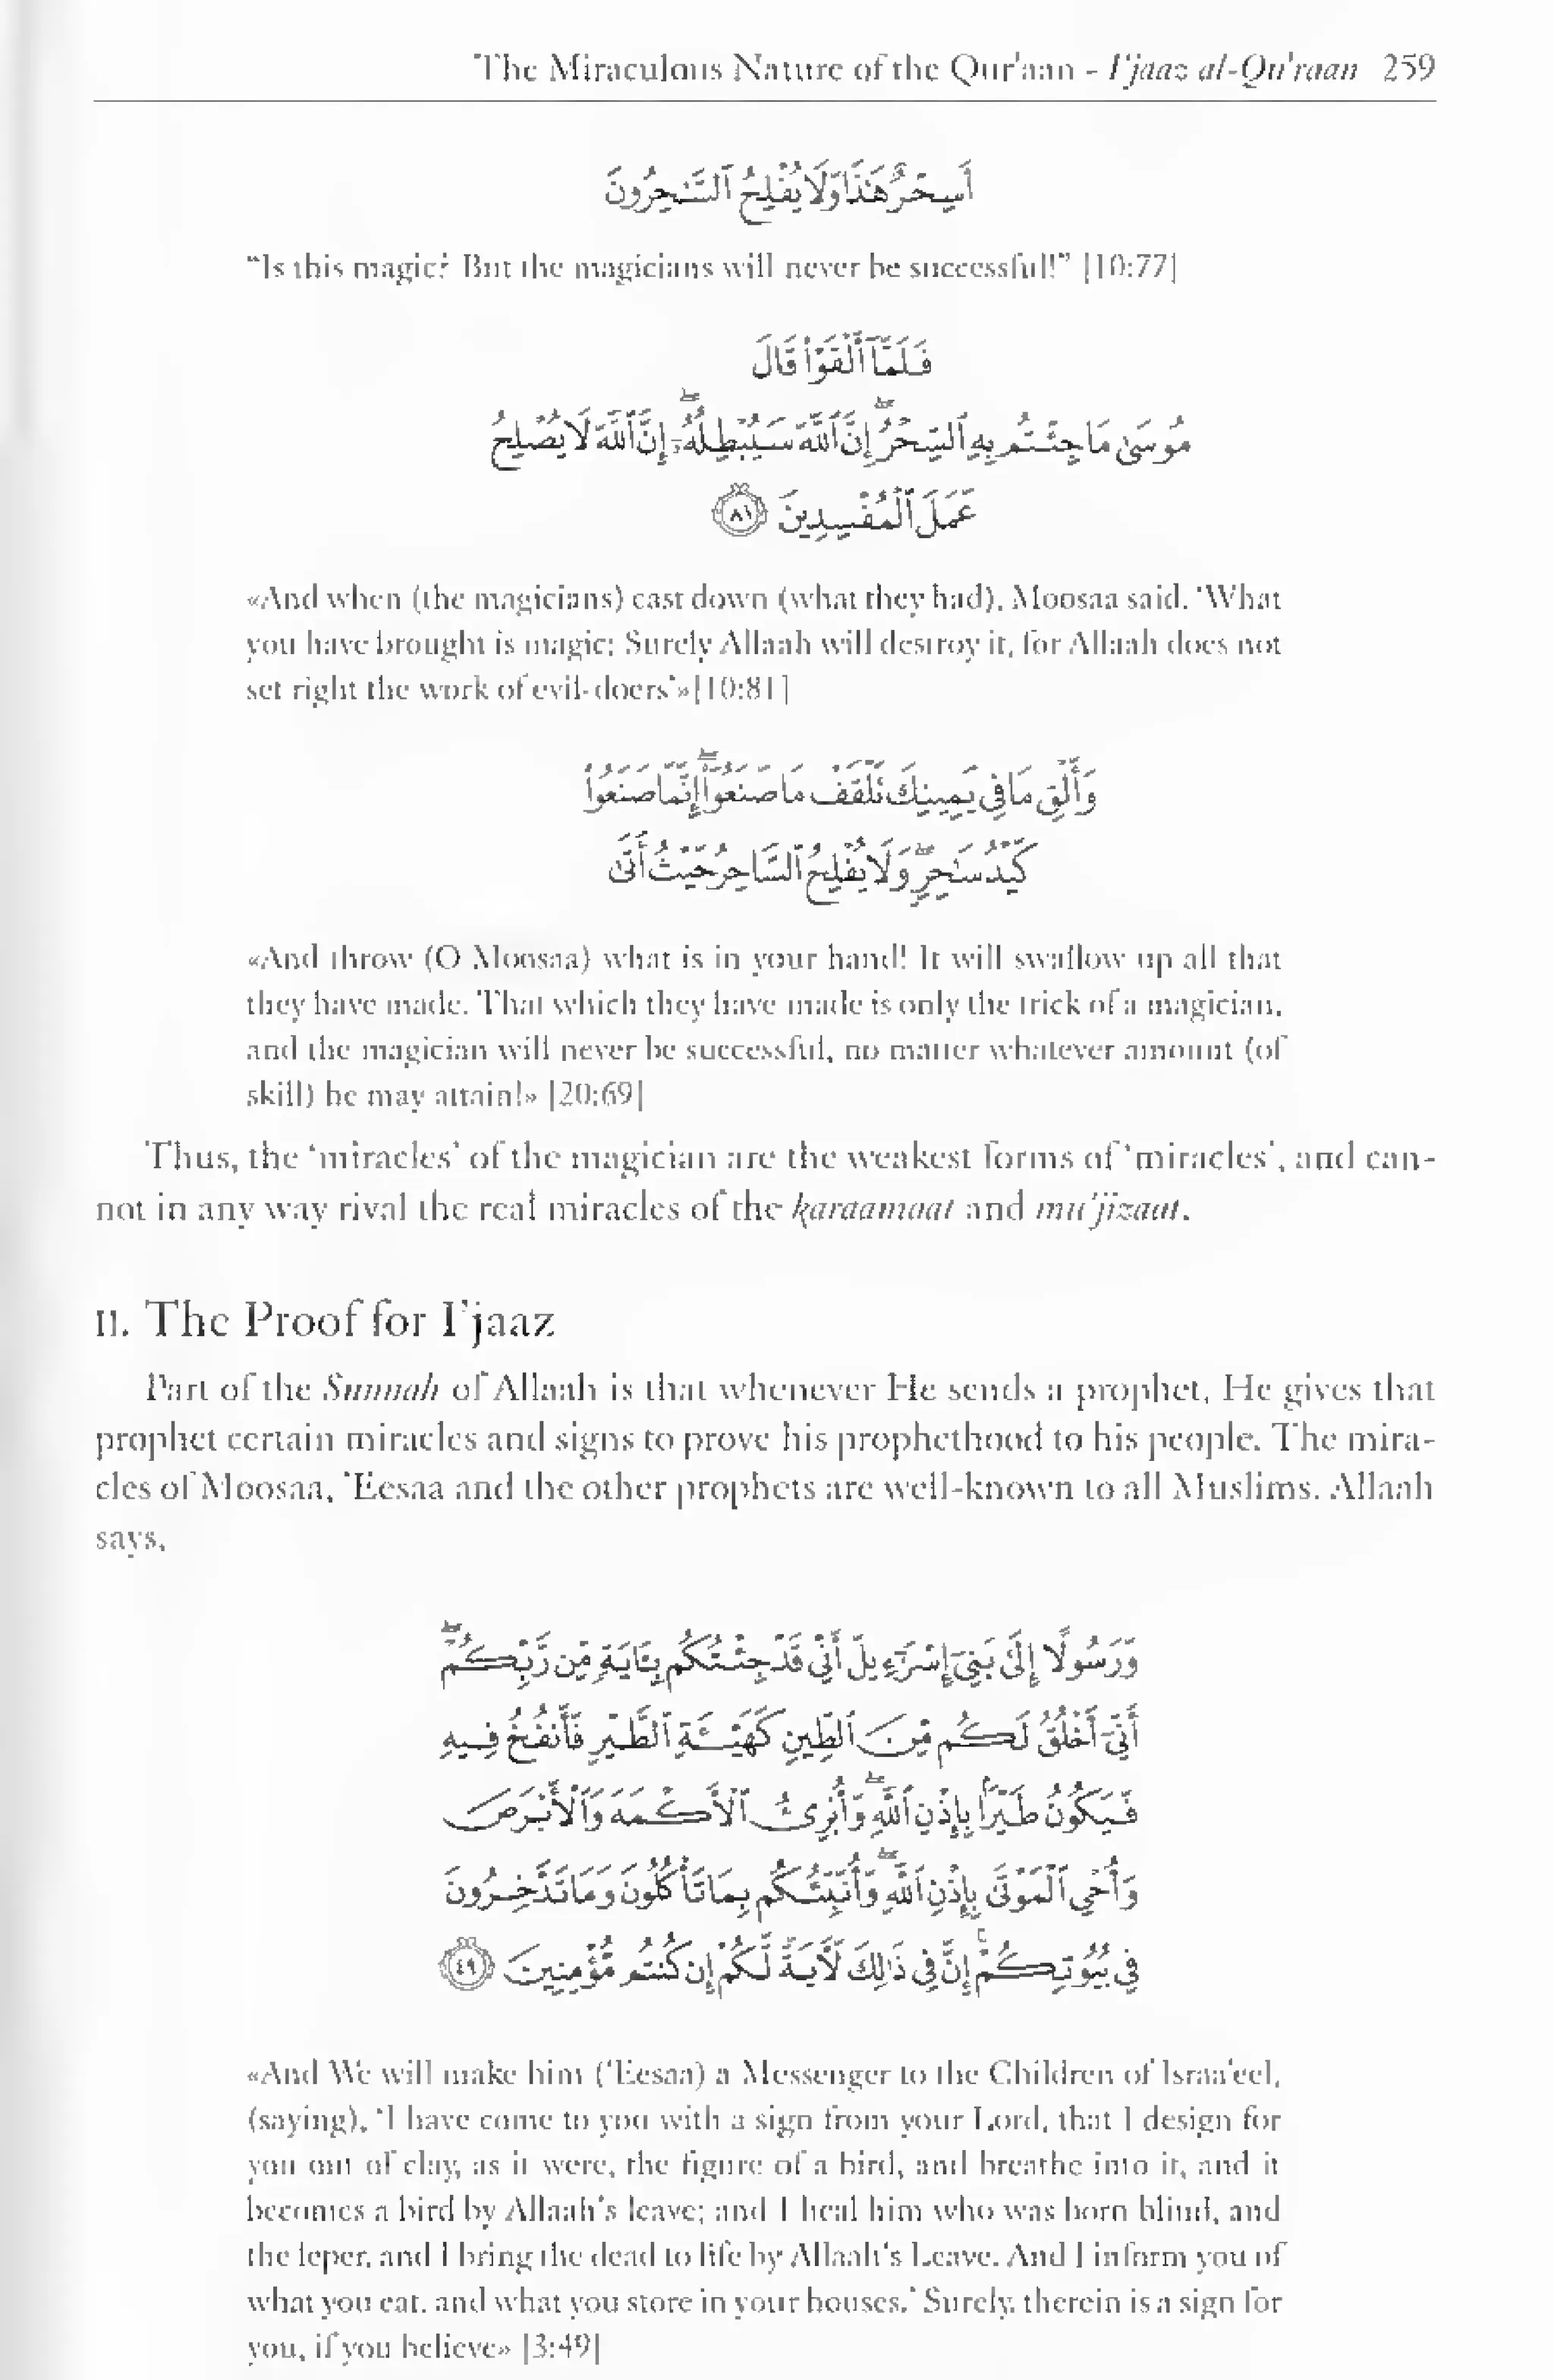 The Miraculous Nature of the Qur'aan - I'jaaz al-Qu'raan 259
أَسِحْرٌ هَٰذَا وَلَا يُفْلِحُ ٱلسَّٰحِرُونَ
"Is this magic? But the magicians will never be successful!" [10:77]
فَلَمَّآ أَلْقَوْا۟ قَالَ
مُوسَىٰ مَا جِئْتُم بِهِ ٱلسِّحْرُ ۖ إِنَّ ٱللَّهَ سَيُبْطِلُهُۥٓ ۖ إِنَّ ٱللَّهَ لَا يُصْلِحُ
عَمَلَ ٱلْمُفْسِدِينَ ٨١
«And when (the magicians) cast down (what they had), Moosaa said. 'What
you have brought is magic; Surely Allaah will destroy it, for Allaah does not
set right the work of evil-doers'»[10:81]
وَأَلْقِ مَا فِى يَمِينِكَ تَلْقَفْ مَا صَنَعُوٓا۟ ۖ إِنَّمَا صَنَعُوا۟
كَيْدُ سَٰحِرٍ ۖ وَلَا يُفْلِحُ ٱلسَّاحِرُ حَيْثُ أَتَىٰ
«And throw (O Moosaa) what is in your hand! It will swallow up all that
they have made. That which they have made is only the trick of a magician,
and the magician will never be successful, no matter whatever amount (of
skill) he may attain!» [20:69]
Thus, the 'miracles' of the magician are the weakest forms of 'miracles', and can-
not in any way rival the real miracles of the karaamaat and mu'jizaat.
II. The Proof for I'jaaz
Part of the Sunnah of Allaah is that whenever He sends a prophet, He gives that
prophet certain miracles and signs to prove his prophethood to his people. The mira-
cles of Moosaa, 'Eesaa and the other prophets are well-known to all Muslims. Allaah
says,
وَرَسُولًا إِلَىٰ بَنِىٓ إِسْرَٰٓءِيلَ أَنِّى قَدْ جِئْتُكُم بِـَٔايَةٍ مِّن رَّبِّكُمْ ۖ
أَنِّىٓ أَخْلُقُ لَكُم مِّنَ ٱلطِّينِ كَهَيْـَٔةِ ٱلطَّيْرِ فَأَنفُخُ فِيهِ
فَيَكُونُ طَيْرًۢا بِإِذْنِ ٱللَّهِ ۖ وَأُبْرِئُ ٱلْأَكْمَهَ وَٱلْأَبْرَصَ
وَأُحْىِ ٱلْمَوْتَىٰ بِإِذْنِ ٱللَّهِ ۖ وَأُنَبِّئُكُم بِمَا تَأْكُلُونَ وَمَا تَدَّخِرُونَ
فِى بُيُوتِكُمْ ۚ إِنَّ فِى ذَٰلِكَ لَءَايَةً لَّكُمْ إِن كُنتُم مُّؤْمِنِينَ ٤٩
«And We will make him ('Eesaa) a Messenger to the Children of Israa'eel,
(saying), 'I have come to you with a sign from your Lord, that I design for
you out of clay, as it were, the figure of a bird, and breathe into it, and it
becomes a bird by Allaah's leave; and I heal him who was born blind, and
the leper, and I bring the dead to life by Allaah's Leave. And I inform you of
what you eat, and what you store in your houses.' Surely, therein is a sign for
you, if you believe» [3:49]